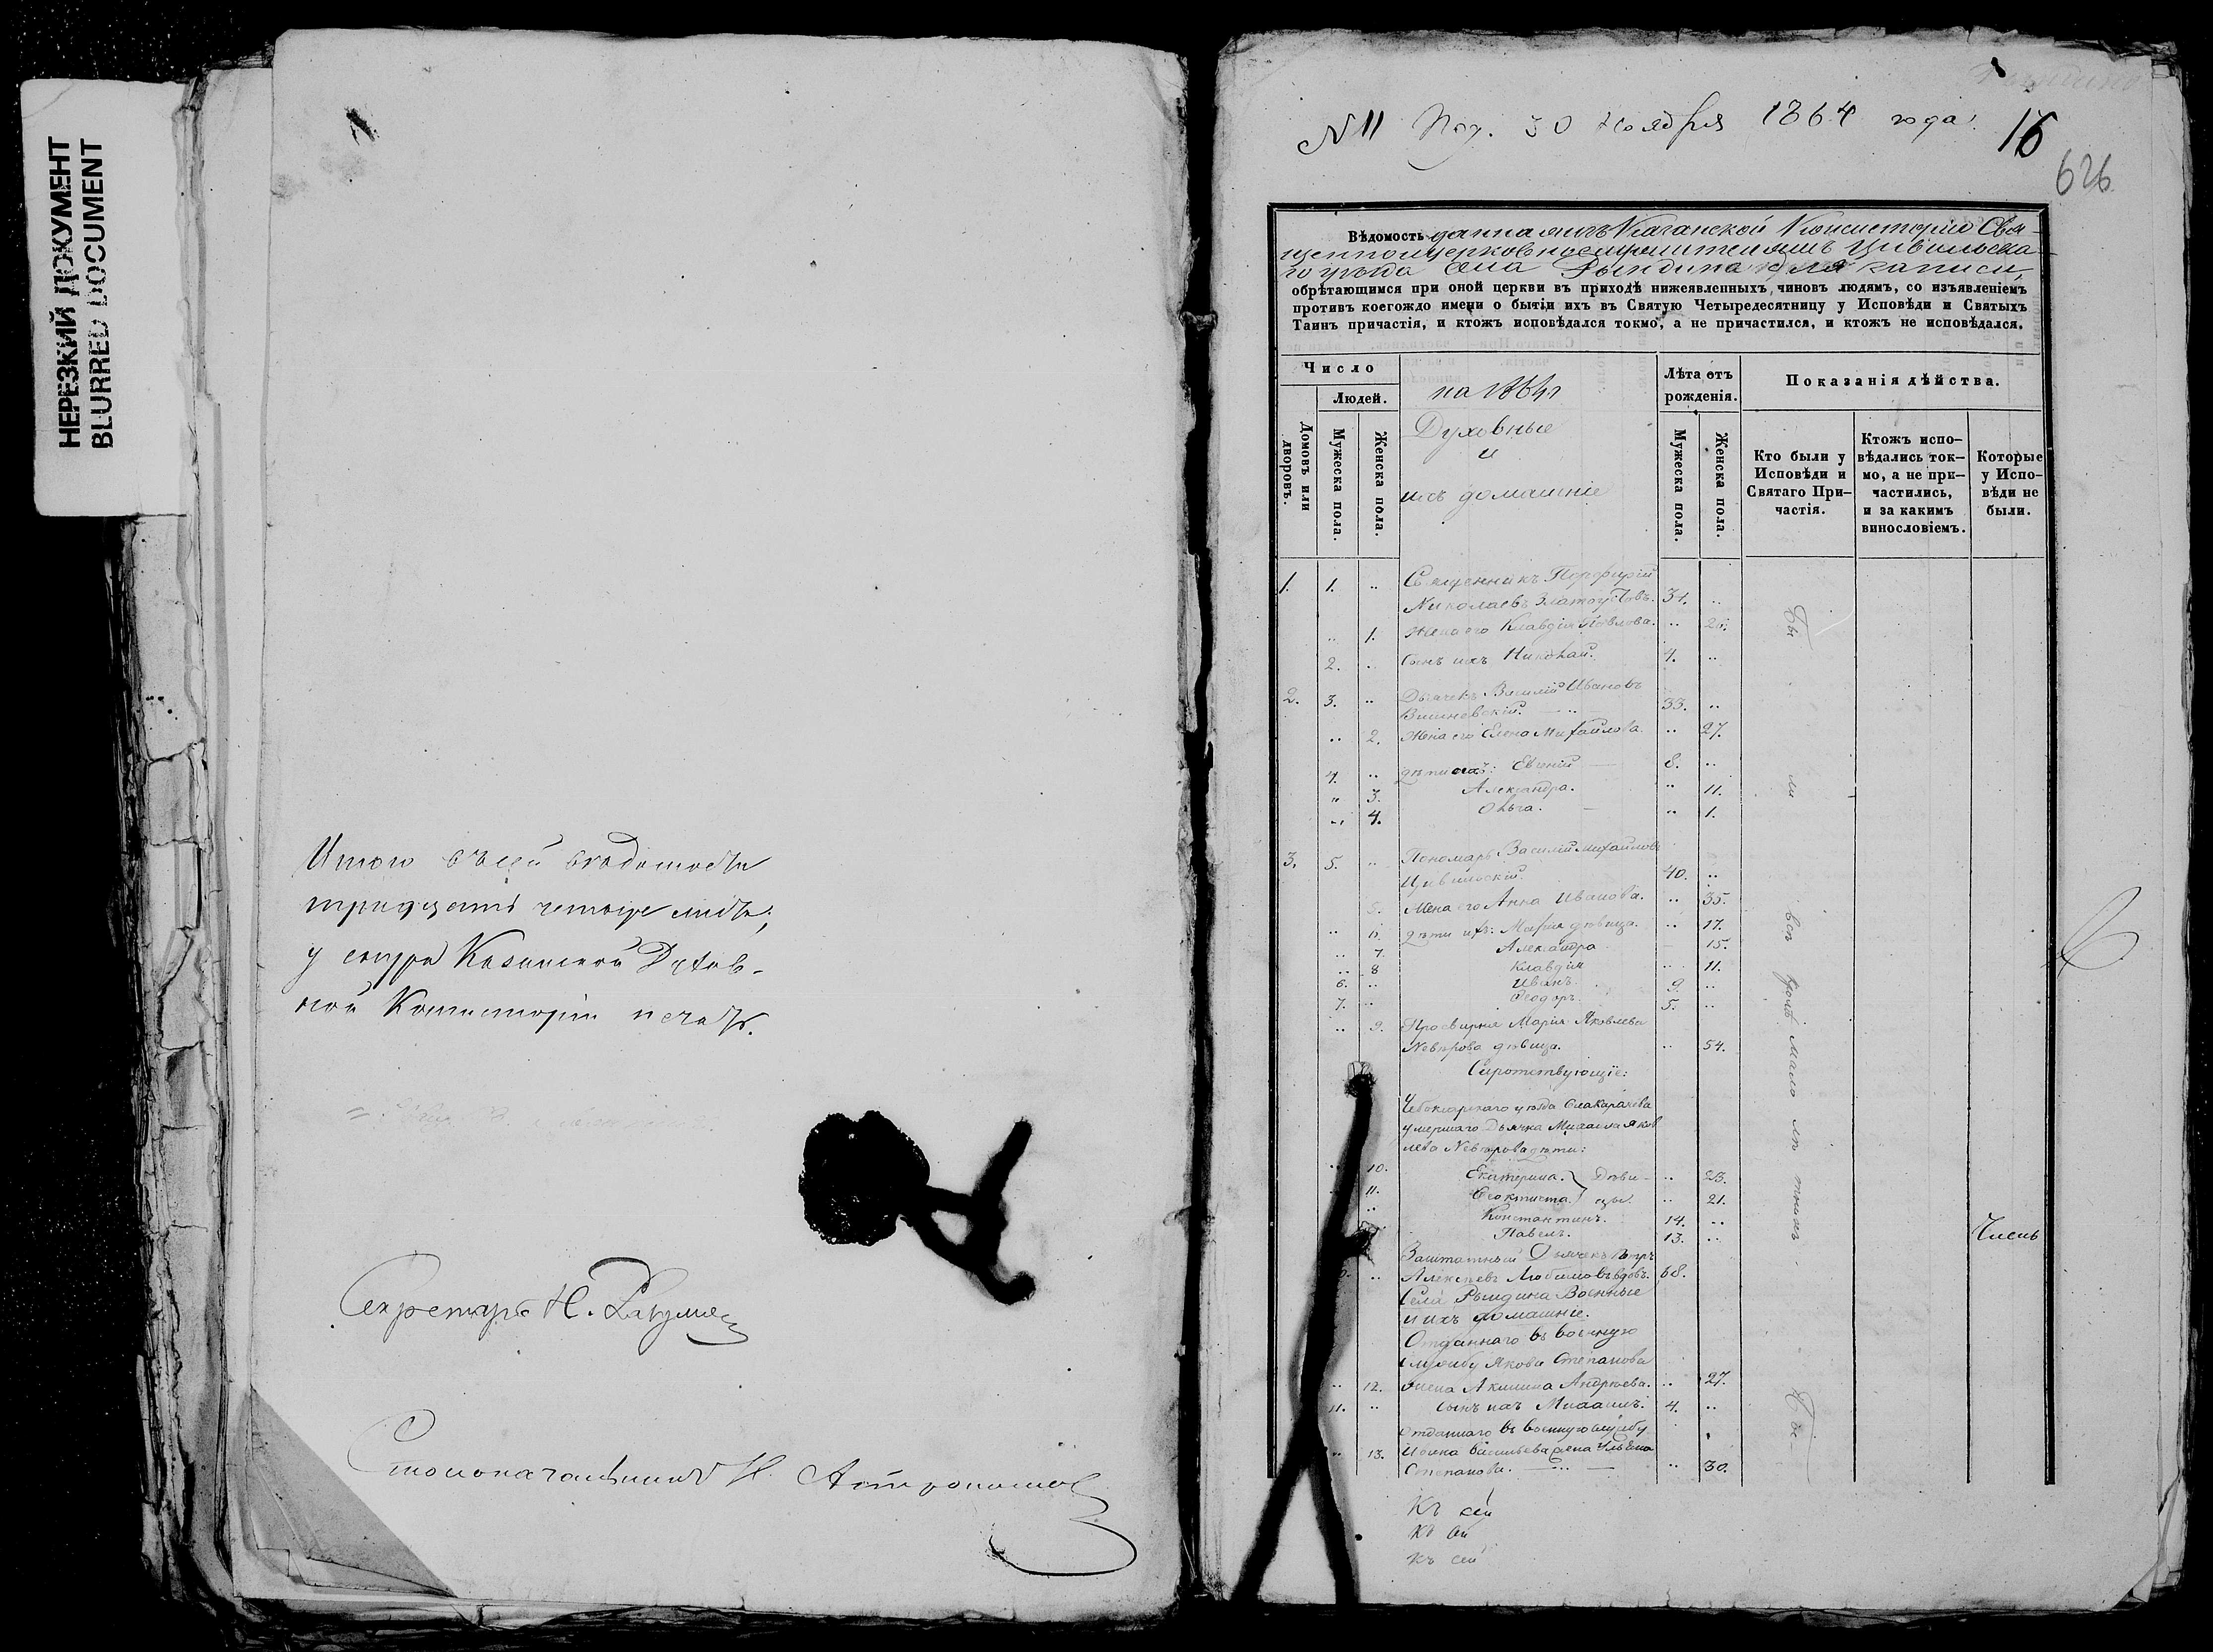 НЕРЕЗКИЙ ДОКУМЕНТ
BLURRED DOCUMENT
Итого въ сей вѣдомости
тридцать четыре листа;
у сего Казанской Духов-
ной Консисторіи печать.
Секретарь Н.
Столоначальникъ Н.
№ 11 Пол. 30 Ноября 1864 года.
16
626
Вѣдомость данная изъ Казанской Консисторіи Свя-
щенноцерковнослужителямъ Цивильска-
го уѣзда села Рындина для записи
обрѣтающимся при оной церкви въ приходѣ нижеявленныхъ чиновъ людямъ, со изъявленіемъ
противъ коегождо имени о бытіи ихъ въ Святую Четыредесятницу у Исповѣди и Святыхъ
Таинъ причастія, и ктожъ исповѣдался токмо, а не причастился, и ктожъ не исповѣдался.
Число
Людей.
Домовъ или дворовъ.
Мужеска пола.
Женска пола.
на 1864 г
Духовные
и
ихъ домашніе
Лѣта отъ рожденія.
Мужеска пола.
Женска пола.
Показанія дѣйства.
Кто были у Исповѣди и Святаго При-частія.
Ктожъ испо-вѣдались ток-мо, а не при-частились, и за какимъ винословіемъ.
Которые у Испо-вѣди не были.
1. 1. .. Священникъ Порфирій
Николаевъ Златоустовъ. 31. ..
.. 1. Жена его Клавдія Павлова. ..
2. .. Сынъ ихъ Николай. 4. ..
2. 3. .. Дьячекъ Василій Ивановъ
Вишневскій. 33. ..
.. 2. Жена его Елена Михайлова. .. 27.
4. .. дѣти ихъ: Евгеній 8. ..
.. 3. Александра. .. 11.
.. 4. Ольга. .. 1.
3. 5. .. Пономарь Василій Михайловъ
Цивильскій. 40. ..
5. Жена его Анна Иванова. .. 35.
.. 6. дѣти ихъ: Марія дѣвица. .. 17.
.. 7. Александра 15.
.. 8 Клавдія .. 11.
6. .. Иванъ. 9. ..
7. .. Ѳеодоръ. 5. ..
.. 9. Просвирня Марія Яковлева
Невзорова дѣвица. .. 54.
Сиротствующіе:
Чебоксарскаго уѣзда села Карачева
умершаго Дьячка Михаила Яков
лева Невзорова дѣти:
.. 10. Екатерина. } Дѣви- .. 23.
11. Ѳеоктиста. } цы. .. 21.
.. Константинъ. 14. ..
Павелъ. 13. ..
Заштатный Дьячекъ Петръ
.. Алексѣевъ Любимовъ вдовъ. 68.
Села Рындина Военные
и ихъ домашніе.
Отданнаго въ военную
службу Якова Степанова
.. 12. жена Акилина Андреева. .. 27.
11. .. сынъ ихъ Михаилъ. 4. ..
Отданнаго въ военную службу
.. 13. Васильева жена Ульяна
Степанова. .. 30.
Бы ли всѣ кромѣ мало лѣ тнихъ.
Къ сей
Къ сей
Къ сей